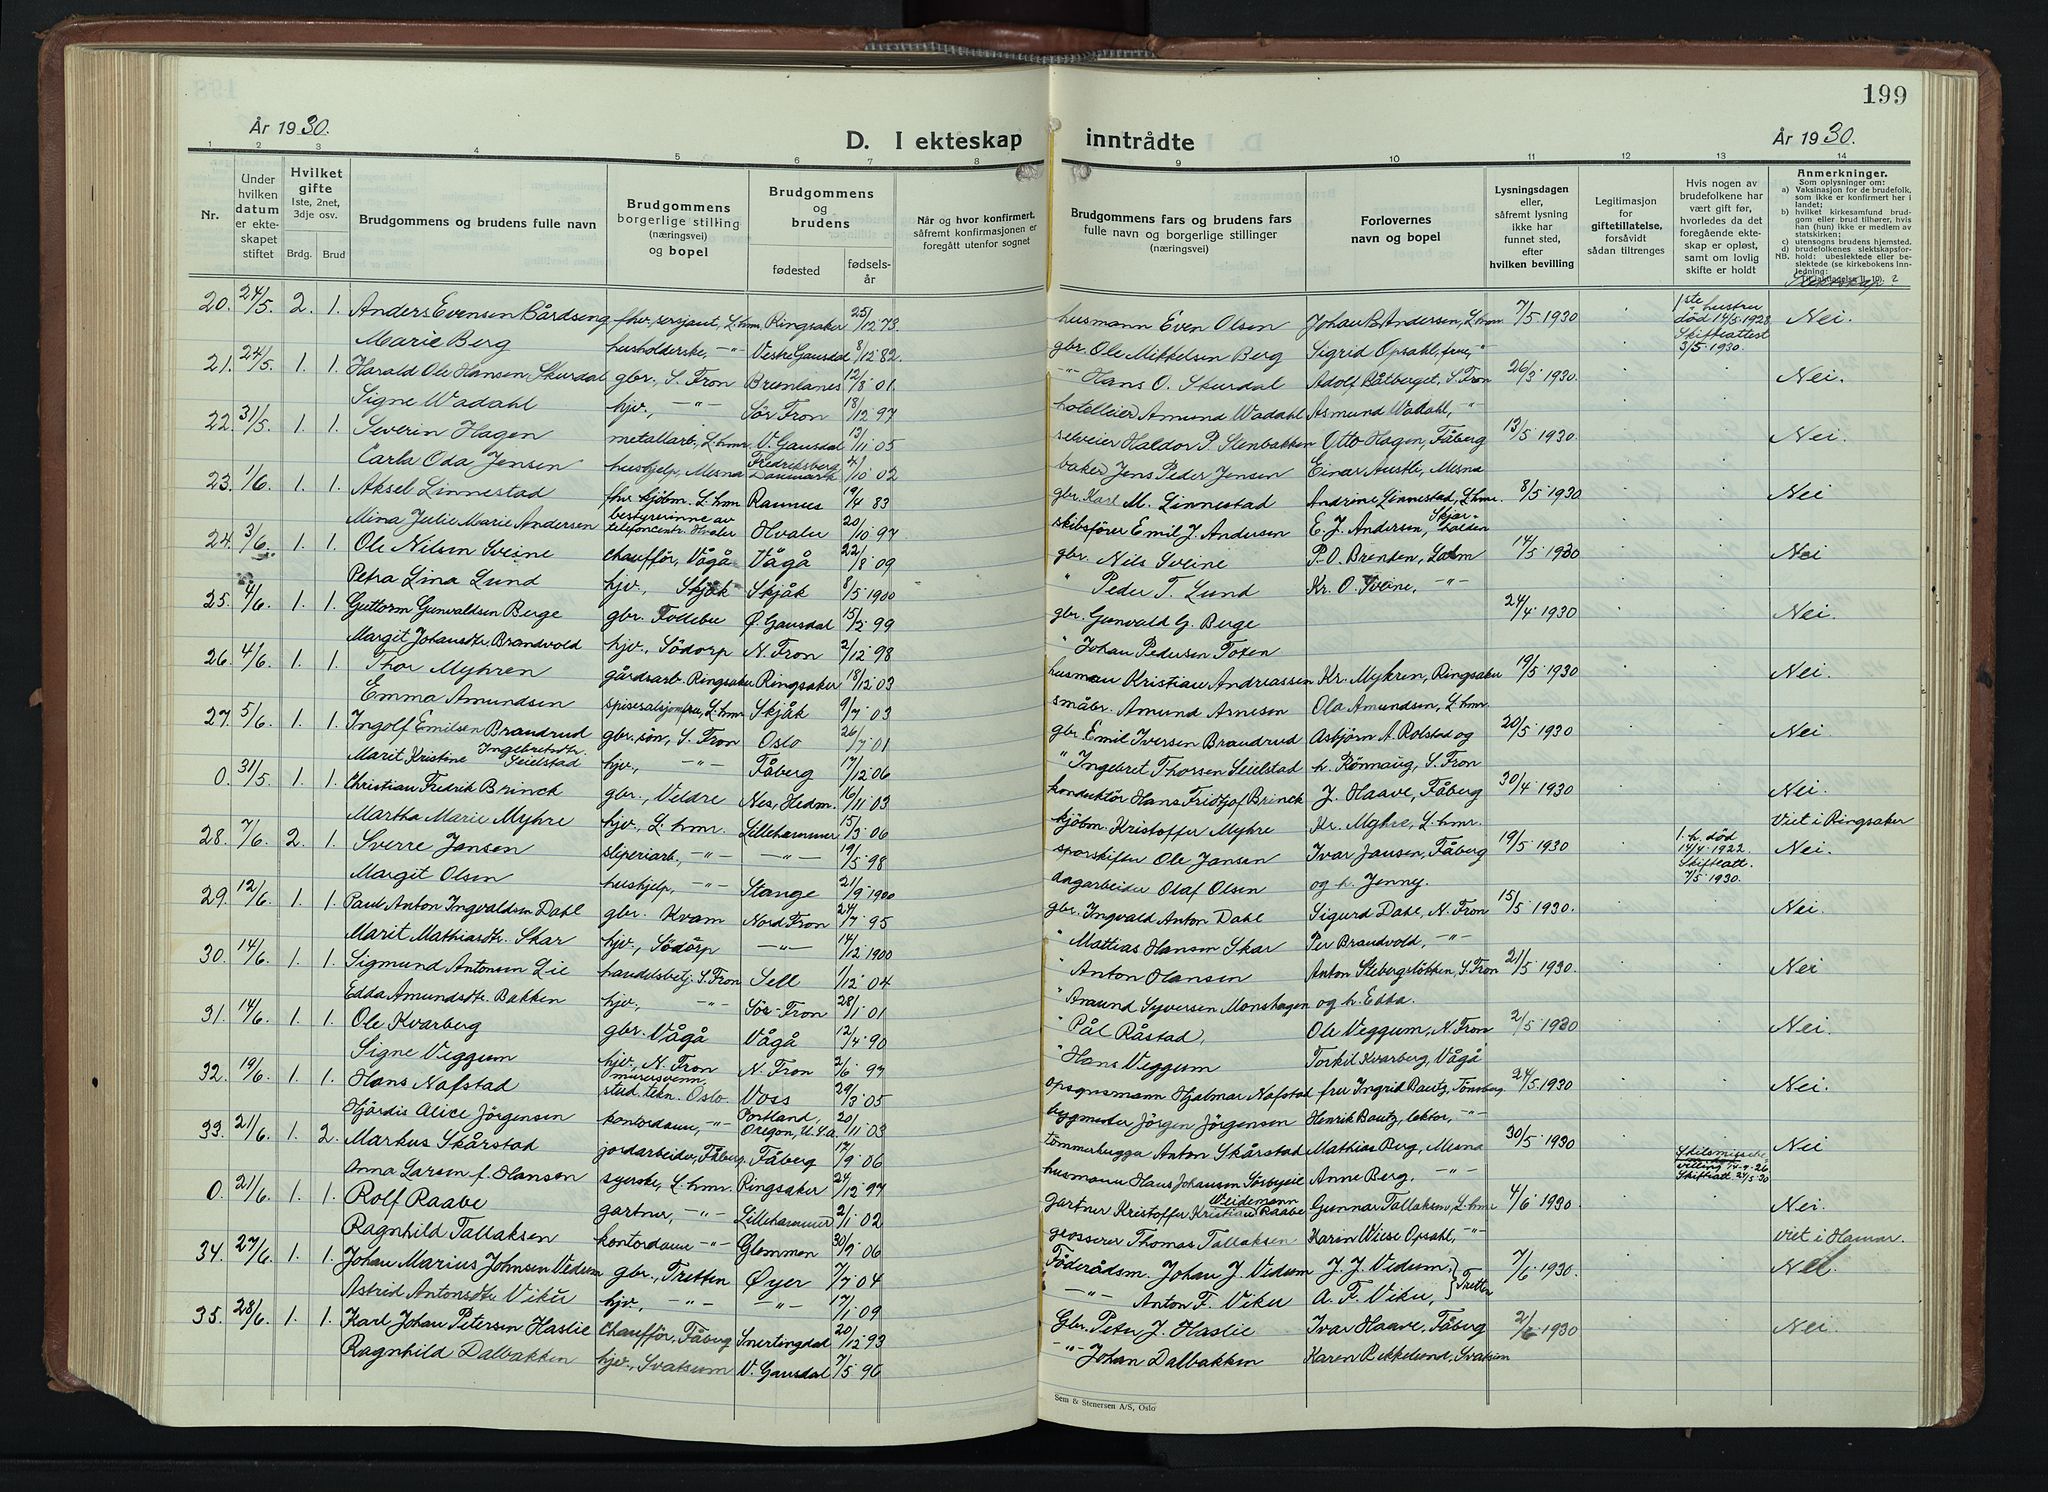 199
År 1930.
D. I ekteskap inntrådte
År 1930.
1 2 3 4 5 6 7 8 9 10 11 12 13 14
Nr.
Under hvilken datum er ekteskapet stiftet
Hvilket gifte 1ste, 2net, 3dje osv.
Brdg. Brud
Brudgommens og brudens fulle navn
Brudgommens borgerlige stilling (næringsvei) og bopel
Brudgommens og brudens
fødested
fødselsår
Når og hvor konfirmert, såfremt konfirmasjonen er foregått utenfor sognet
Brudgommens fars og brudens fars fulle navn og borgerlige stillinger (næringsvei)
Forlovernes navn og bopel
Lysningsdagen eller, såfremt lysning ikke har funnet sted, efter hvilken bevilling
Legitimasjon for giftetillatelse, forsåvidt sådan tiltrenges
Hvis nogen av brudefolkene har vært gift før, hvorledes da det foregående ekteskap er opløst, samt om lovlig skifte er holdt
Anmerkninger.
Som oplysninger om:
a) Vaksinasjon for de brudefolk, som ikke er konfirmert her i landet;
b) hvilket kirkesamfund brudgom eller brud tilhører, hvis han (hun) ikke er medlem av statskirken;
c) utensogns brudens hjemsted.
d) brudefolkenes slektskapsforhold: ubeslektede eller beslektede (se kirkebokens innledning:
NB.
20. 24/5 2. 1. Anders Evensen Bårdseng fhv. sersjant, L.hmr. Ringsaker 25/12 73 husmann Even Olsen Johan B. Andersen, L.hmr. 7/5 1930 1ste hustru død 14/5 1928 Skifteattest 3/5 1930. Nei.
Marie Berg husholderske, -"- Vestre Gausdal 8/12 82. gbr. Ole Mikkelsen Berg Sigrid Opsahl, frue, -"-
21. 24/5 1. 1. Harald Ole Hansen Skurdal gbr., S. Fron Brenlanes 12/8 01. -"- Hans O. Skurdal Adolf Pålberget, S. Fron 26/3 1930. Nei.
Signe Wadahl hjv., -"- Sör Fron 18/12 97 hotelleier Amund Wadahl Asmund Wadahl, -"-
22. 31/5 1. 1. Severin Hagen metallarb., L.hmr. V. Gausdal 13/11 05 selveier Haldor P. Stenbakken Otto Hagen, Fåberg 13/5 1930. Nei.
Carla Oda Jensen hushjelp, Mesna Fredriksberg Danmark 4/10 02 baker Jens Peder Jensen Einar Austli, Mesna
23. 1/6 1. 1. Aksel Linnestad fhv. kjöbm. L.hmr Ramnes 19/4 83 gbr. Karl M. Linnestad Andrine Linnestad, L.hmr. 8/5 1930 Nei
Mina Julie Marie Andersen bestyrerinne av telefoncentr. Hvaler Hvaler 20/10 97 skibsförer Emil J. Andersen E. J. Andersen, Skjærhalden
24. 3/6 1. 1. Ole Nilsen Sveine Chaufför, Vågå Vågå 22/8 09 gbr. Nils Sveine P. O. Brenden, Lalm 14/5 1930 Nei
Petra Lina Lund hjv., Skjåk Skjåk 8/5 1900 " Peder T. Lund Kr. O. Sveine, -"-
25. 4/6 1. 1. Guttorm Gunvaldsen Berge gbr. Follebu Ø. Gausdal 15/2 99 gbr. Gunvald G. Berge 24/4 1930 Nei
Margit Johansdtr. Brandvold hjv., Södorp N. Fron 2/12 98 " Johan Pedersen Toxen
26. 4/6 1. 1. Thor Myhren gårdsarb. Ringsaker Ringsaker 18/12 03 husman Kristian Andreassen Kr. Myhren, Ringsaker 19/5 1930 Nei.
Emma Amundsen L.hmr. Skjåk 9/7 03 småbr. Amund Arnesen Ola Amundsen, L.hmr.
27. 5/6 1. 1. Ingolf Emilsen Brandrud gbr. sön, S. Fron Oslo 26/7 01 gbr. Emil Iversen Brandrud Asbjörn A. Rolstad og 20/5 1930 Nei.
Marit Kristine Ingebretsdtr. Seielstad hjv., -"- Fåberg 17/12 06 " Ingebret Thorsen Seielstad h. Rönnaug, S. Fron
0. 31/5 1. 1. Christian Fredrik Brinck gbr., Veldre Nes, Hedm. 16/11 03 konduktör Hans Fridtjof Brinck J. Haave, Fåberg 30/4 1930 Nei.
Martha Marie Myhre hjv., L.hmr. Lillehammer 15/3 06 kjöbm. Kristoffer Myhre Kr. Myhre, L.hmr. Viet i Ringsaker
28. 7/6 2. 1. Sverre Jansen sliperiarb., -"- -"- 19/5 98 sporskifter Ole Jansen Ivar Jansen, Fåberg 19/5 1930 1. h. död 14/4 1922. Skifteatt. 7/5 1930. Nei.
Margit Olsen hushjelp, -"- Stange 21/9 1900 dagarbeider Olaf Olsen og h. Jenny.
29. 12/6 1. 1. Paul Anton Ingvaldsen Dahl gbr. Kvam Nord Fron 24/7 95 gbr. Ingvald Anton Dahl Sigurd Dahl, N. Fron 15/5 1930. Nei.
Marit Mathiasdtr. Skar hjv., Södorp -"- 14/12 1900 " Mattias Hansen Skar Per Brandvold, -"-
30. 14/6 1. 1. Sigmund Antonsen Lie handelsbetj. S. Fron Sell 1/2 04 " Anton Hansen Anton Slebergslökken, S. Fron 21/5 1930. Nei
Edda Amundsdtr. Bakken hjv., -"- Sör-Fron 28/1 01 " Amund Syversen Monshagen og h. Edda.
31. 14/6 1. 1. Ole Kvarberg gbr. Vågå Vågå 12/4 90 " Pål Råstad, Ole Veggum, N. Fron 2/5 1930 Nei.
Signe Veggum hjv., N. Fron N. Fron 2/6 97 " Hans Veggum Torkil Kvarberg, Vågå
32. 19/6 1. 1. Hans Nafstad murersvenn stud. tekn. Oslo. Voss 29/3 05 opsynsmann Hjalmar Nafstad fru Ingrid Bautz, Tönsberg 24/5 1930 Nei.
Hjördis Alice Jörgensen kontordame, -"- Portland, Oregon, U.S.a. 20/11 03 bygmester Jörgen Jörgensen Henrik Bautz, lektor, -"-
33. 21/6 1. 2. Markus Skårstad jordarbeider, Fåberg. Fåberg 17/9 06 tömmerhugger Anton Skårstad Mathias Berg, Mesna 30/5 1930 Nei
Anna Larsen f. Hansen syerske, L.hmr. Ringsaker 24/12 97 husmann Hans Johansen Sörbyeie Anne Berg, -"- 14-9-26 Skifteatt 21/5 30
0. 21/6 1. 1. Rolf Raabe gartner, -"- Lillehammer 2/1 02 gartner Kristoffer Kristian Weidemann Raabe Gunnar Tallaksen, L.hmr 4/6 1930. Nei.
Ragnhild Tallaksen kontordame -"- Glemmen 30/9 06 grosserer Thomas Tallaksen Karin Wiese Opsahl, -"- viet i Hamar.
34. 27/6 1. 1. Johan Marius Johnsen Vedum gbr., Tretten Øyer 7/7 04 Föderådsm. Johan J. Vedum J. J. Vedum. 7/6 1930. Nei
Astrid Antonsdtr Viku hjv., -"- -"- 17/1 09 -"- Anton F. Viku A. F. Viku, Tretten
35. 28/6 1. 1. Karl Johan Petersen Haslie Chaufför, Fåberg Snertingdal 20/12 93 Gbr. Peter J. Haslie Ivar Haave, Fåberg 2/6 1930 Nei.
Ragnhild Dalbakken hjv., Svatsum V. Gausdal 7/5 96 -"- Johan Dalbakken Karen Rikkelund, Svatsum
Sem & Stenersen A/S, Oslo